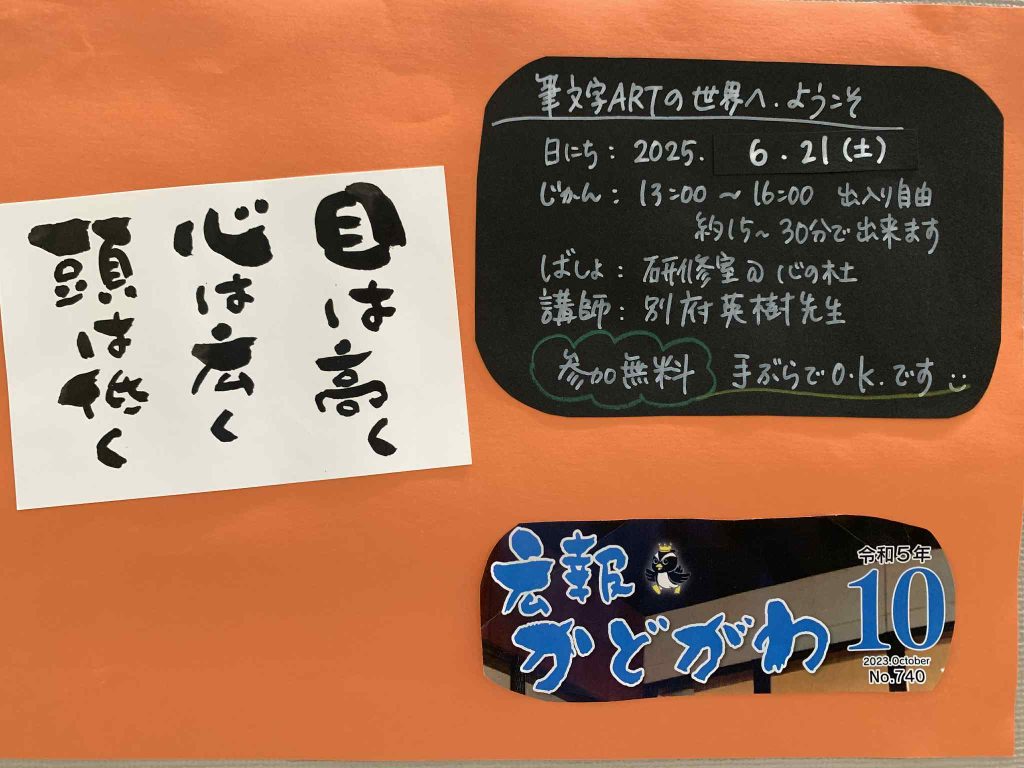 目は高く
心は広く
頭は低く
筆文字ARTの世界へ.ようこそ
日にち: 2025. 6.21(土)
じかん: 13:00～16:00 出入り自由
約15～30分で出来ます
ばしょ: 研修室@心の杜
講師: 別府英樹先生
参加無料 手ぶらでO.K.です
広報
かどがわ
令和5年
10
2023.October
No.740